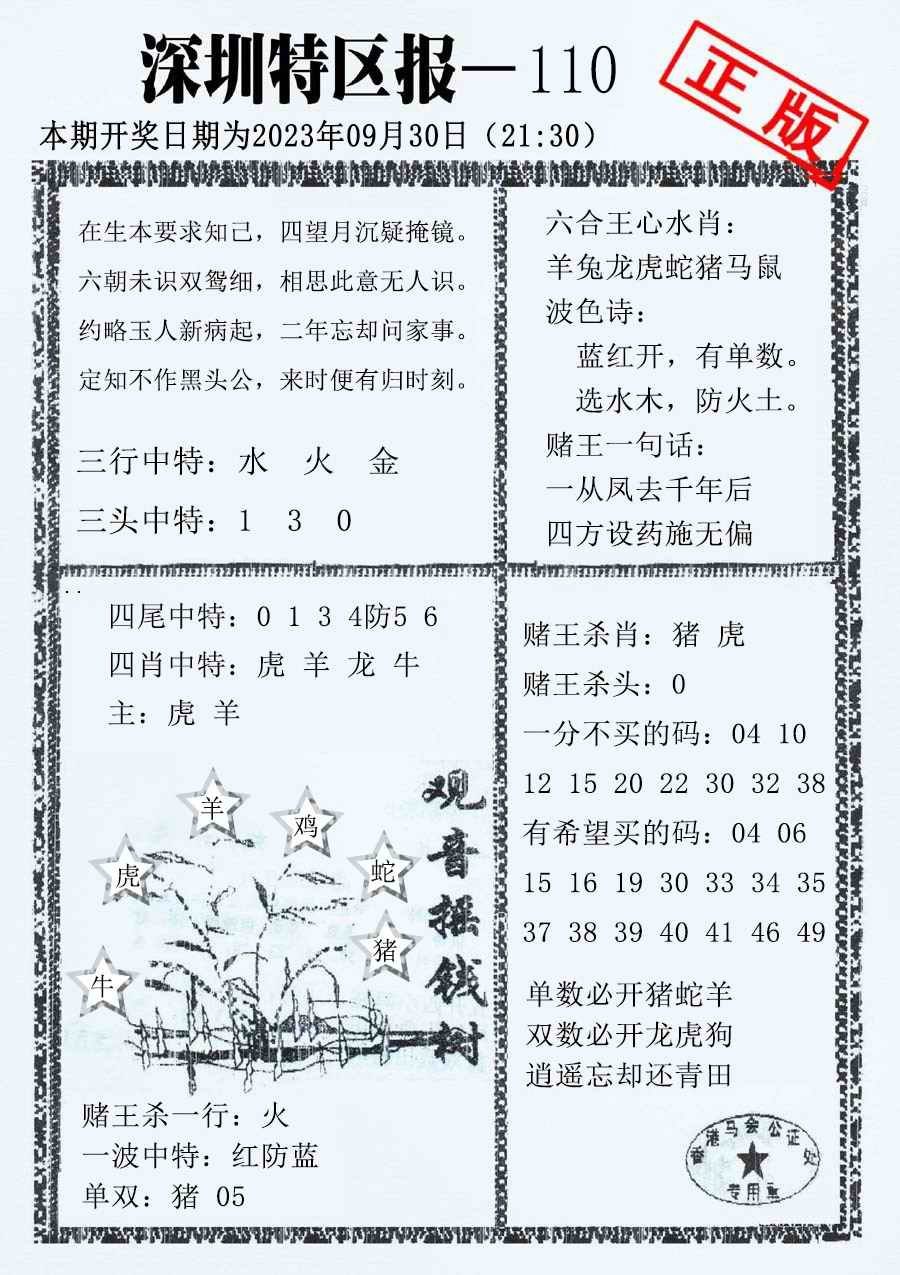 深圳特区报—110
正版
本期开奖日期为2023年09月30日（21:30）
在生本要求知己，四望月沉疑掩镜。
六朝未识双鸳细，相思此意无人识。
约略玉人新病起，二年忘却问家事。
定知不作黑头公，来时便有归时刻。
三行中特：水 火 金
三头中特：1 3 0
六合王心水肖：
羊兔龙虎蛇猪马鼠
波色诗：
蓝红开，有单数。
选水木，防火土。
赌王一句话：
一从凤去千年后
四方设药施无偏
四尾中特：0 1 3 4防5 6
四肖中特：虎 羊 龙 牛
主：虎 羊
羊
鸡
虎
蛇
猪
牛
观音摇钱树
赌王杀一行：火
一波中特：红防蓝
单双：猪 05
赌王杀肖：猪 虎
赌王杀头：0
一分不买的码：04 10
12 15 20 22 30 32 38
有希望买的码：04 06
15 16 19 30 33 34 35
37 38 39 40 41 46 49
单数必开猪蛇羊
双数必开龙虎狗
逍遥忘却还青田
香港马会公证处
专用章